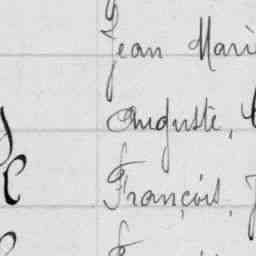 Jean Marie
Auguste,
François,